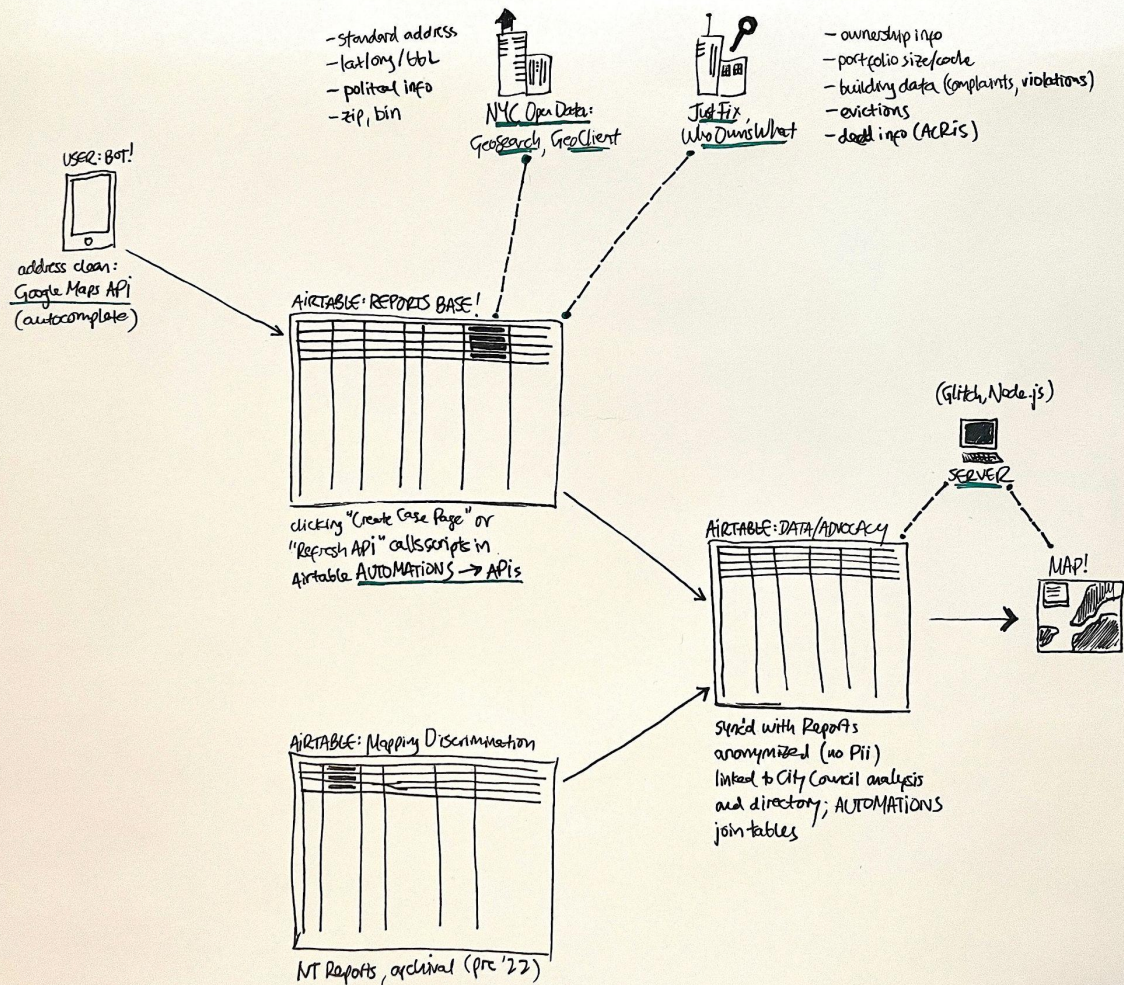 - standard address
- lat/long/bbl
- political info
- zip, bin
NYC Open Data:
Geosearch, GeoClient
JustFix,
WhoOwnsWhat
- ownership info
- portfolio size/code
- building data (complaints, violations)
- evictions
- deed info (ACRIS)
USER: BOT!
address clean:
Google Maps API
(autocomplete)
AIRTABLE: REPORTS BASE!
clicking "Create Case Page" or
"Refresh API" calls scripts in
Airtable AUTOMATIONS → APIs
(Glitch, Node.js)
SERVER
AIRTABLE: DATA/ADVOCACY
MAP!
sync'd with Reports
anonymized (no Pii)
linked to City Council analysis
and directory; AUTOMATIONS
join tables
AIRTABLE: Mapping Discrimination
NT Reports, archival (pre '22)